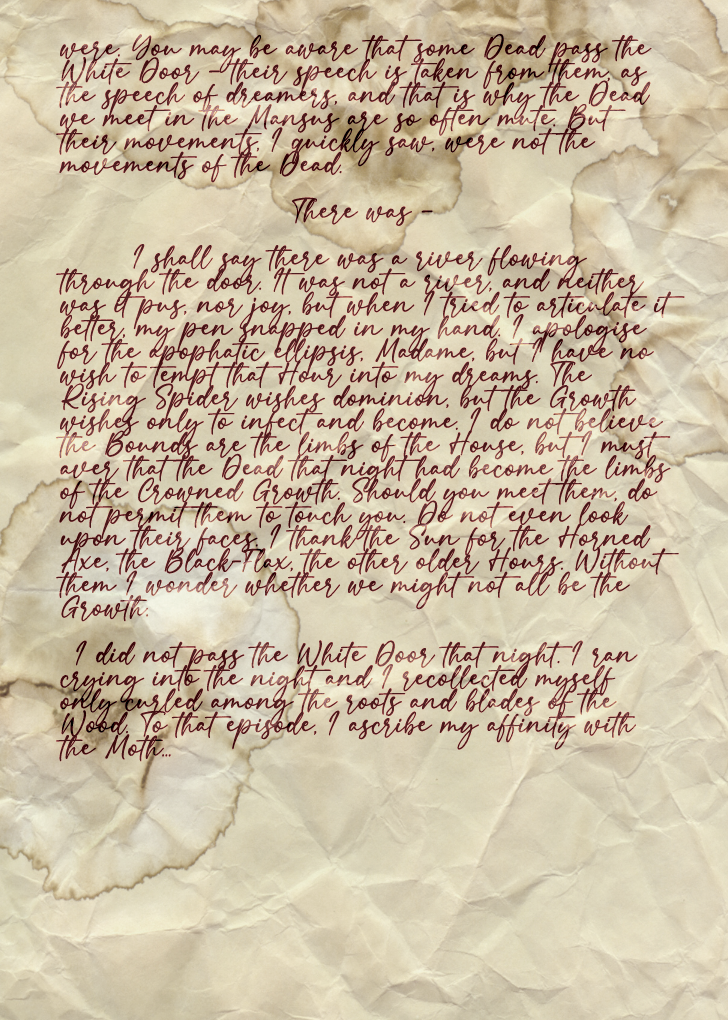 were. You may be aware that some Dead pass the
White Door – their speech is taken from them, as
the speech of dreamers, and that is why the Dead
we meet in the Mansus are so often mute. But
their movements, I quickly saw, were not the
movements of the Dead.
There was –
I shall say there was a river flowing
through the door. It was not a river, and neither
was it pus, nor joy, but when I tried to articulate it
better, my pen snapped in my hand. I apologise
for the apophatic ellipsis, Madame, but I have no
wish to tempt that Hour into my dreams. The
Rising Spider wishes dominion, but the Growth
wishes only to infect and become. I do not believe
the Bounds are the limbs of the House, but I must
aver that the Dead that night had become the limbs
of the Crowned Growth. Should you meet them, do
not permit them to touch you. Do not even look
upon their faces. I thank the Sun for the Horned
Axe, the Black-Flax, the other older Hours. Without
them I wonder whether we might not all be the
Growth.
I did not pass the White Door that night. I ran
crying into the night and I recollected myself
only curled among the roots and blades of the
Wood. To that episode, I ascribe my affinity with
the Moth...